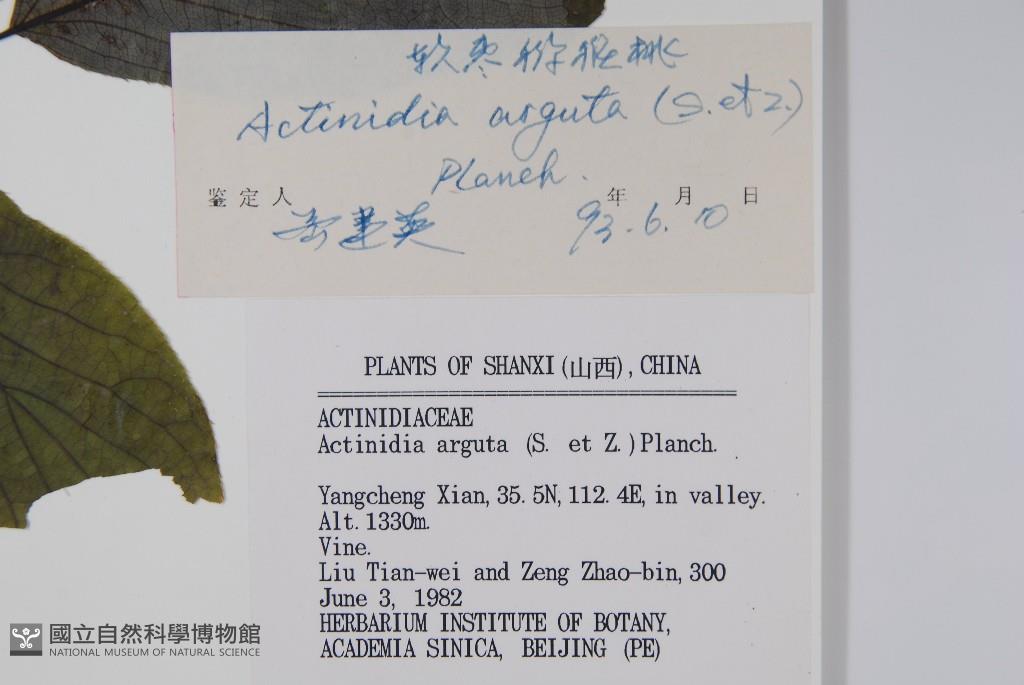 软枣猕猴桃
Actinidia arguta (S. et Z.)
Planch.
鉴定人 年 月 日
93.6.10
PLANTS OF SHANXI(山西), CHINA
ACTINIDIACEAE
Actinidia arguta (S. et Z.) Planch.
Yangcheng Xian, 35.5N, 112.4E, in valley.
Alt. 1330m.
Vine.
Liu Tian-wei and Zeng Zhao-bin, 300
June 3, 1982
HERBARIUM INSTITUTE OF BOTANY,
ACADEMIA SINICA, BEIJING (PE)
國立自然科學博物館
NATIONAL MUSEUM OF NATURAL SCIENCE